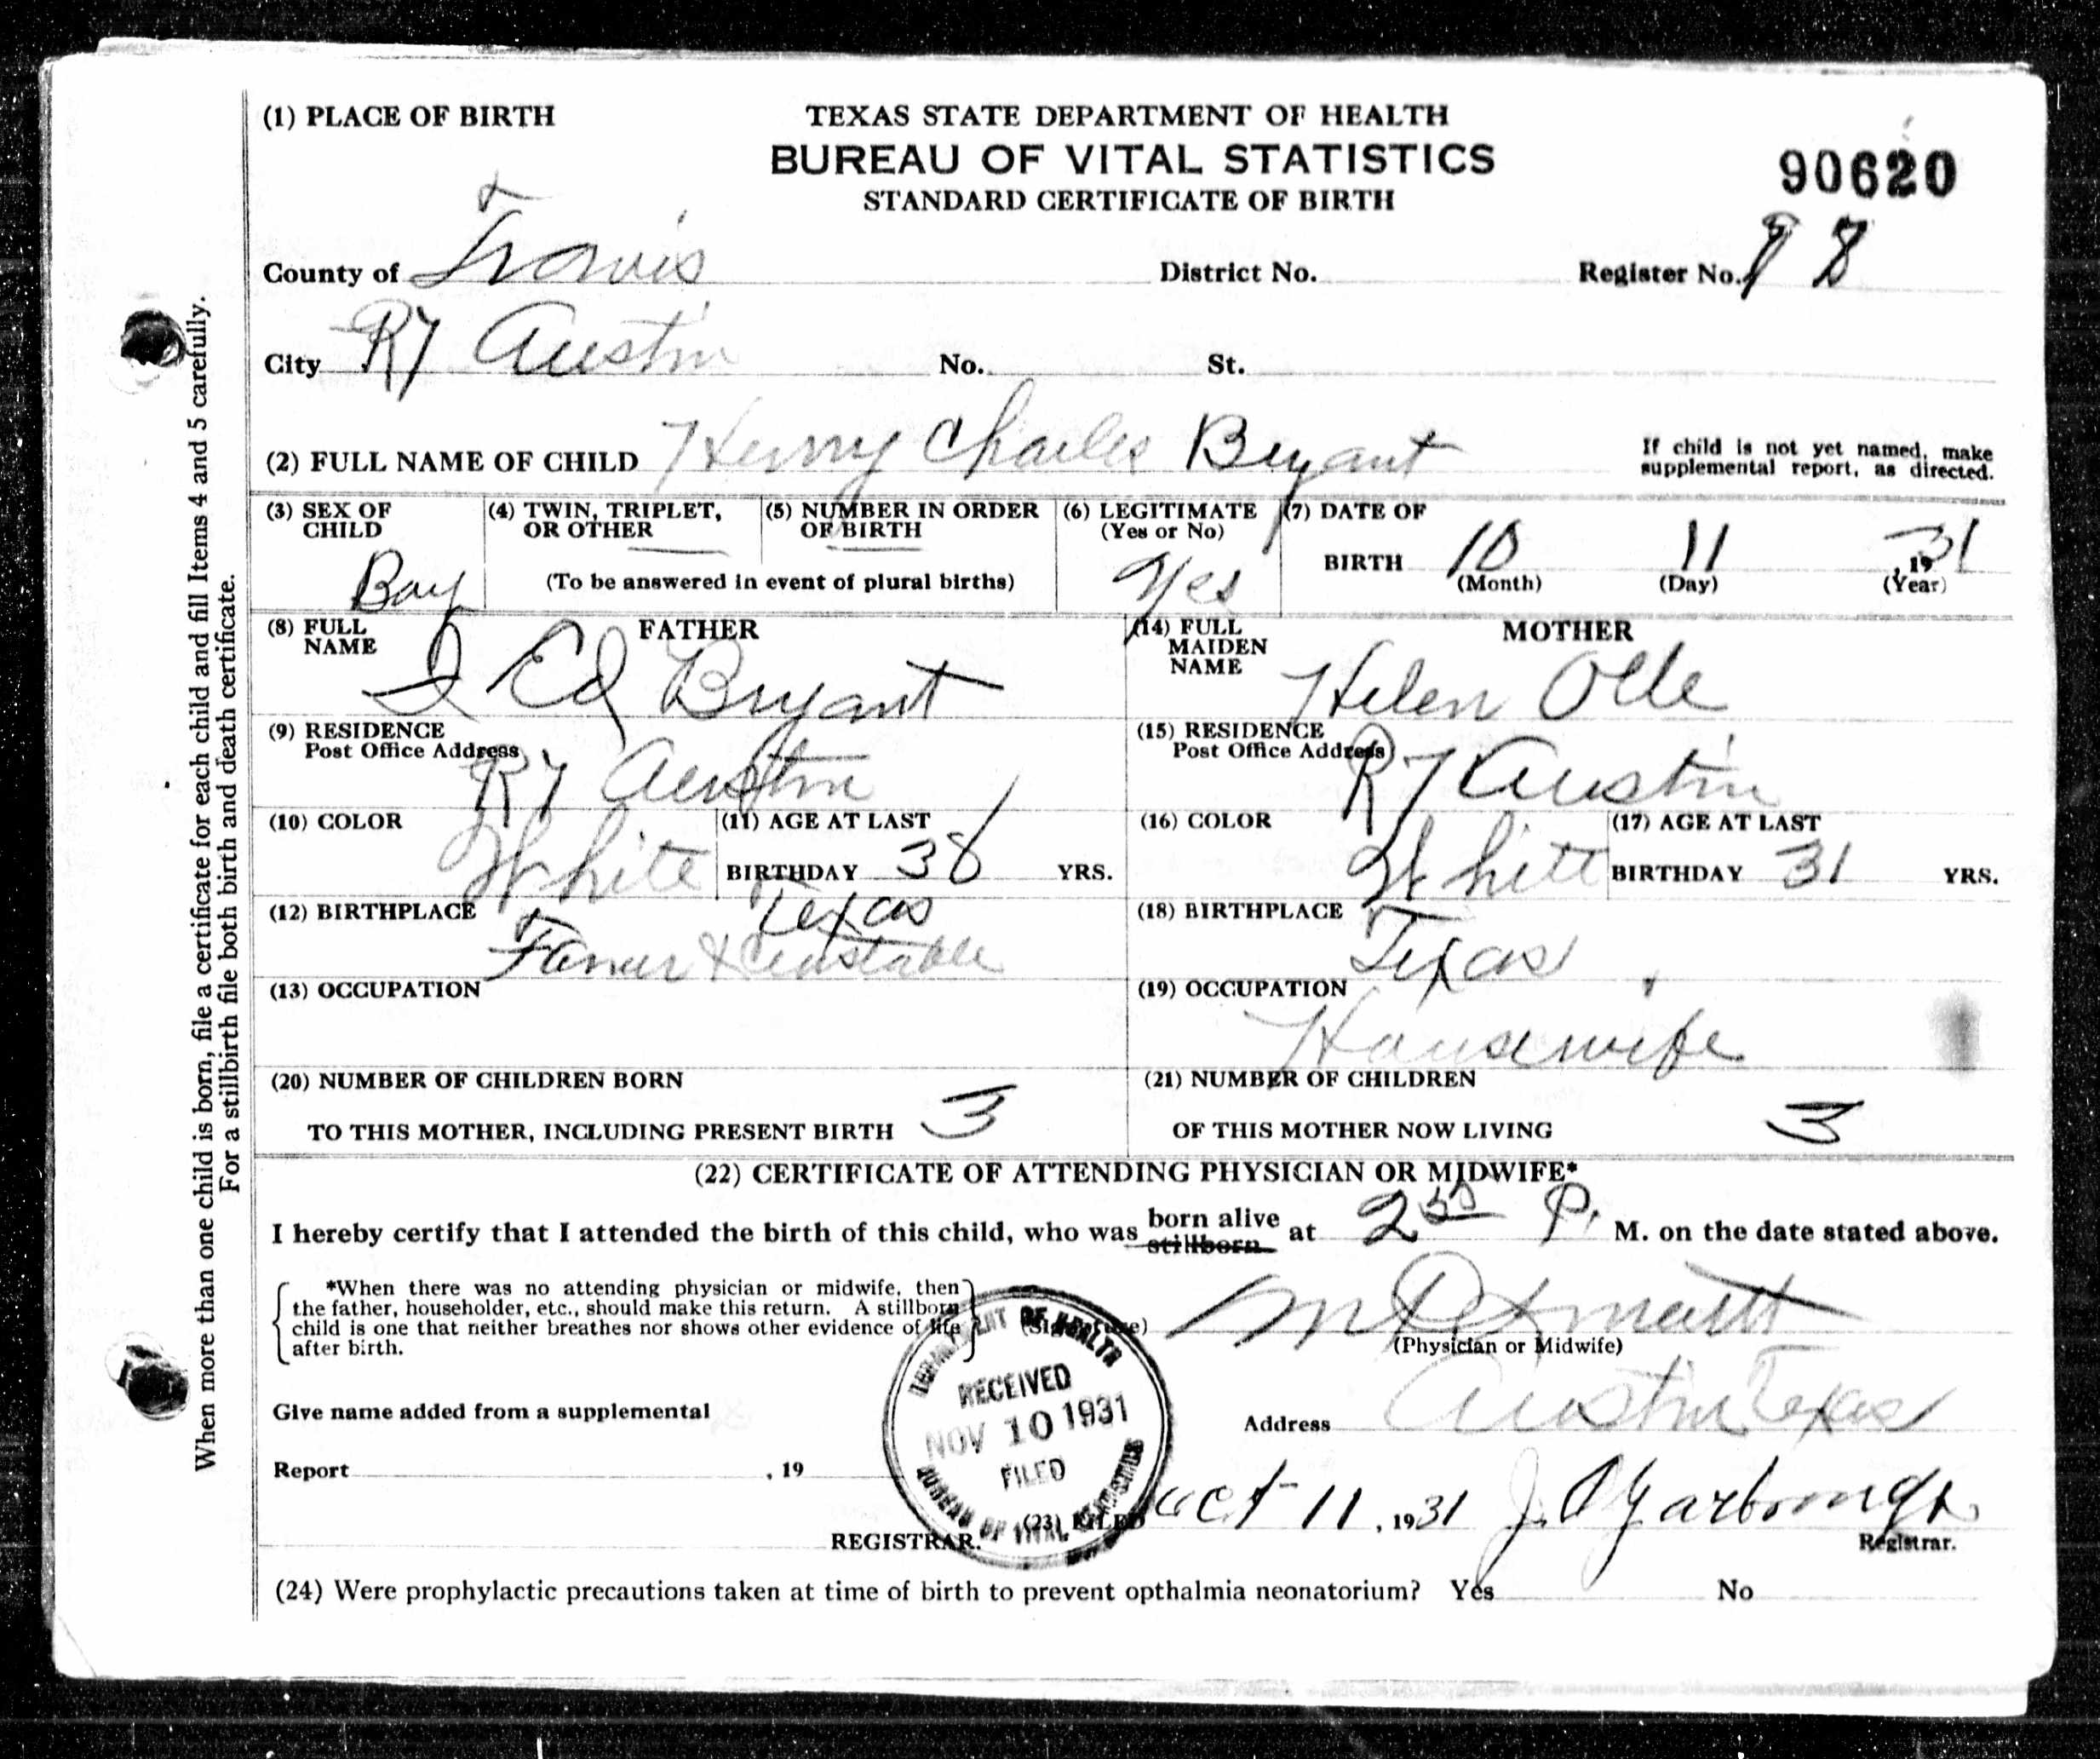 (1) PLACE OF BIRTH
TEXAS STATE DEPARTMENT OF HEALTH
BUREAU OF VITAL STATISTICS
STANDARD CERTIFICATE OF BIRTH
90620
County of Travis District No. Register No.
City R7 Austin No. St.
(2) FULL NAME OF CHILD Henry Charles Bryant
If child is not yet named, make
supplemental report, as directed.
(3) SEX OF CHILD Boy
(4) TWIN, TRIPLET, OR OTHER
(5) NUMBER IN ORDER OF BIRTH
(To be answered in event of plural births)
(6) LEGITIMATE (Yes or No) Yes
(7) DATE OF BIRTH 10 11 , 1931
(Month) (Day) (Year)
FATHER
(8) FULL NAME Ed Bryant
(9) RESIDENCE
Post Office Address R7 Austin
(10) COLOR White
(11) AGE AT LAST BIRTHDAY 38 YRS.
(12) BIRTHPLACE Texas
Farmer & Constable
(13) OCCUPATION
MOTHER
(14) FULL MAIDEN NAME Helen Olle
(15) RESIDENCE
Post Office Address R7 Austin
(16) COLOR White
(17) AGE AT LAST BIRTHDAY 31 YRS.
(18) BIRTHPLACE Texas
(19) OCCUPATION Housewife
(20) NUMBER OF CHILDREN BORN
TO THIS MOTHER, INCLUDING PRESENT BIRTH 3
(21) NUMBER OF CHILDREN
OF THIS MOTHER NOW LIVING 3
(22) CERTIFICATE OF ATTENDING PHYSICIAN OR MIDWIFE*
I hereby certify that I attended the birth of this child, who was born alive stillborn at 2 50 P. M. on the date stated above.
*When there was no attending physician or midwife, then
the father, householder, etc., should make this return. A stillborn
child is one that neither breathes nor shows other evidence of life
after birth.
(Signature)
(Physician or Midwife)
DEPARTMENT OF HEALTH
RECEIVED
NOV 10 1931
FILED
BUREAU OF VITAL STATISTICS
Give name added from a supplemental
Address Austin Texas
Report , 19
(23) FILED Oct 11, 1931 J. A Yarbrough
REGISTRAR. Registrar.
(24) Were prophylactic precautions taken at time of birth to prevent opthalmia neonatorium? Yes No
When more than one child is born, file a certificate for each child and fill Items 4 and 5 carefully.
For a stillbirth file both birth and death certificate.